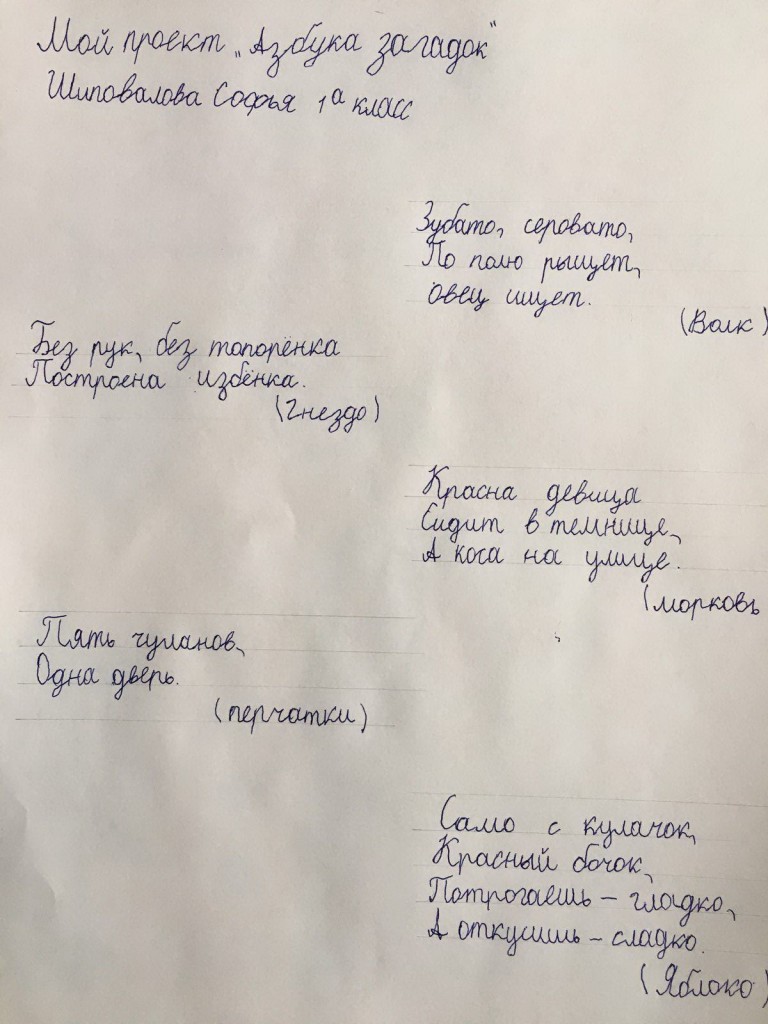 Мой проект „Азбука загадок"
Шиповалова Софья 1а класс
Зубато, серовато,
По полю рыщет,
овец ищет.
(Волк)
Без рук, без топорёнка
Построена избёнка.
(Гнездо)
Красна девица
Сидит в темнице,
А коса на улице.
(морковь
Пять чуланов,
Одна дверь.
(перчатки)
Само с кулачок,
Красный бочок,
Потрогаешь – гладко,
А откусишь – сладко.
(Яблоко)